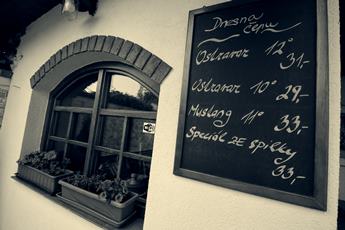 Dnesna
čepu
Ostravar 12° 31,-
Ostravar 10° 29,-
Mustang 11° 33,-
Speciál ZE spilky
33,-